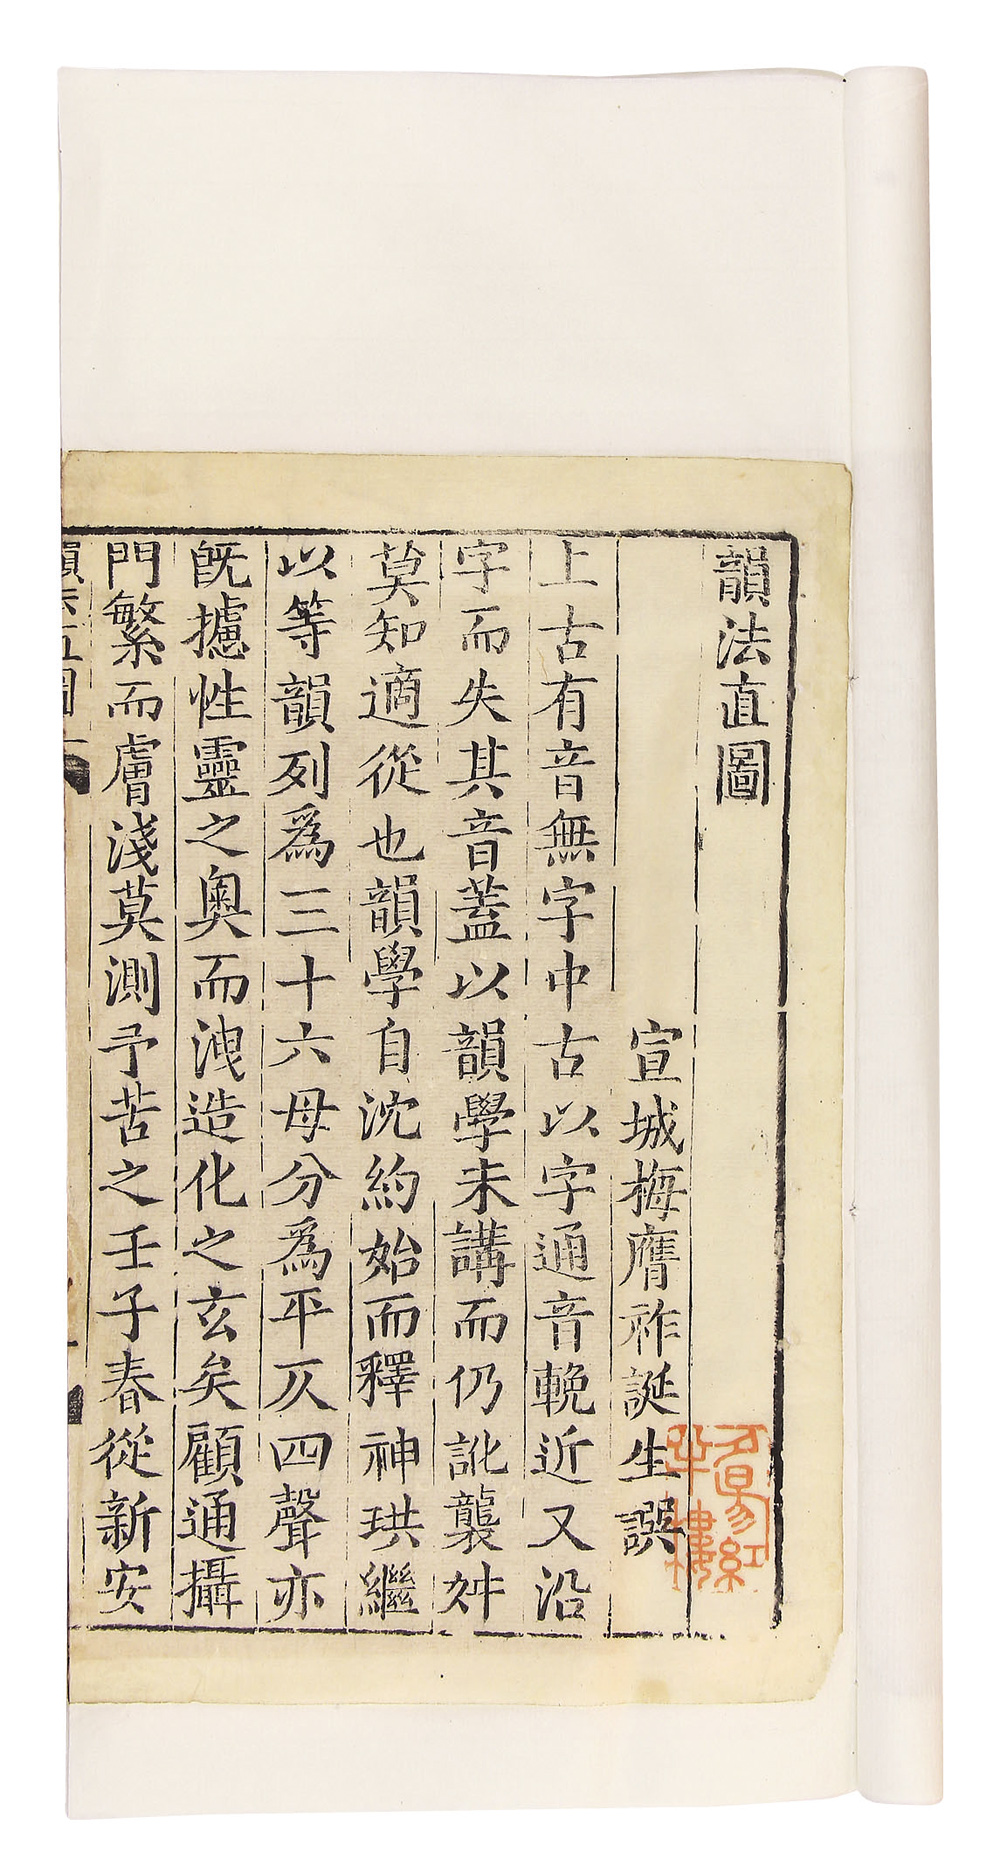 韻法直圖
宣城梅膺祚誕生譔
上古有音無字中古以字通音輓近又沿
字而失其音蓋以韻學未講而仍訛襲舛
莫知適從也韻學自沈約始而釋神珙繼
以等韻列爲三十六母分爲平仄四聲亦
旣攄性靈之奧而洩造化之玄矣顧通攝
門繁而膚淺莫測予苦之壬子春從新安
韻法直圖